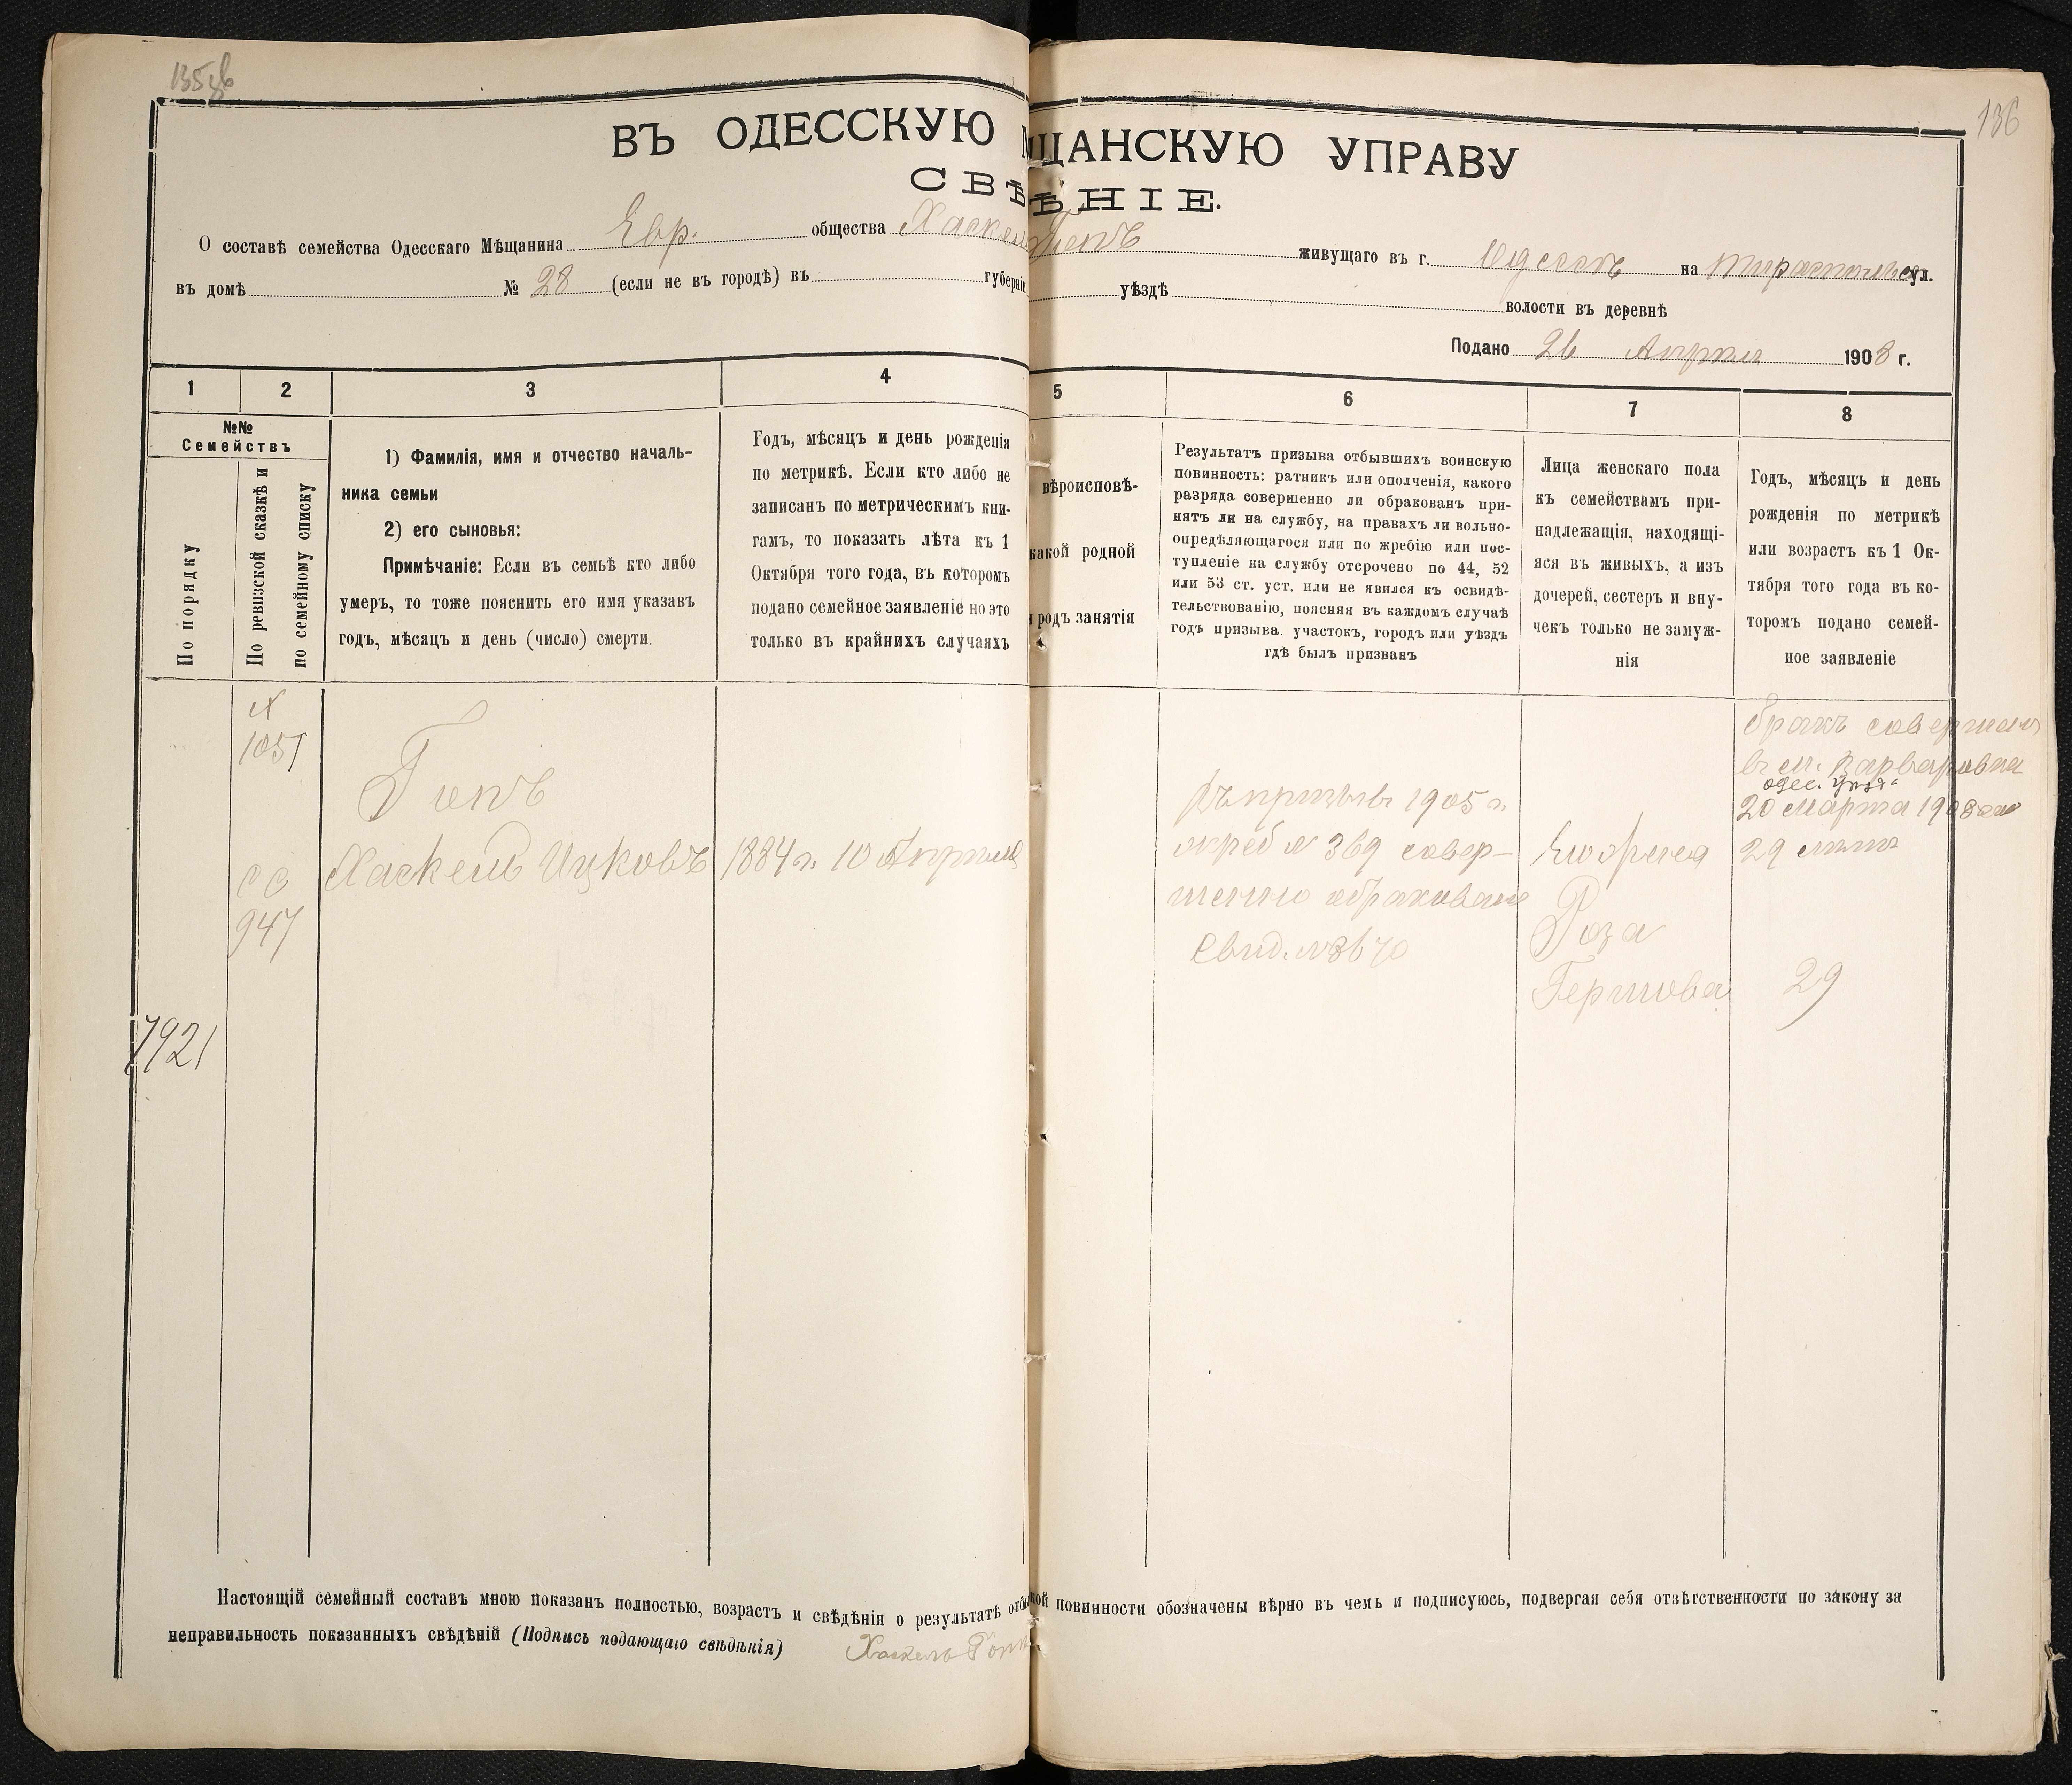 136
ВЪ ОДЕССКУЮ ЩАНСКУЮ УПРАВУ
СВѢ ѢНІЕ.
О составѣ семейства Одесскаго Мѣщанина Евр. общества Хаскель живущаго въ г. Одессѣ на Тираспольс ул.
въ домѣ № 28 (если не въ городѣ) въ губерніи уѣздѣ волости въ деревнѣ
Подано 26 Апрѣля 1908 г.
1 2 3 4 5 6 7 8
№№
Семействъ
По порядку
По ревизской сказкѣ и
по семейному списку
1) Фамилія, имя и отчество началь-
ника семьи
2) его сыновья:
Примѣчаніе: Если въ семьѣ кто либо
умеръ, то тоже пояснить его имя указавъ
годъ, мѣсяцъ и день (число) смерти.
Годъ, мѣсяцъ и день рожденія
по метрикѣ. Если кто либо не
записанъ по метрическимъ кни-
гамъ, то показать лѣта къ 1
Октября того года, въ которомъ
подано семейное заявленіе но это
только въ крайнихъ случаяхъ
вѣроисповѣ-
какой родной
родъ занятія
Результатъ призыва отбывшихъ воинскую
повинность: ратникъ или ополченія, какого
разряда совершенно ли обракованъ при-
нятъ ли на службу, на правахъ ли вольно-
опредѣляющагося или по жребію или пос-
тупленіе на службу отсрочено по 44, 52
или 53 ст. уст. или не явился къ освидѣ-
тельствованію, поясняя въ каждомъ случаѣ
годъ призыва. участокъ, городъ или уѣздъ
гдѣ былъ призванъ
Лица женскаго пола
къ семействамъ при-
надлежащія, находящі-
яся въ живыхъ, а изъ
дочерей, сестеръ и вну-
чекъ только не замуж-
нія
Годъ, мѣсяцъ и день
рожденія по метрикѣ
или возрастъ къ 1 Ок-
тября того года въ ко-
торомъ подано семей-
ное заявленіе
1051
947
7921
Хаскель Ицковъ
1884 г. 10 Апрѣля
Въ призывъ 1905 г.
жреб № 369 совер-
шенно обракованъ
Свид. № 3670
Роза
Гершова
бракъ совершонъ
въ м. Варваровка
одес. уѣзда
20 Марта 1908
29 лѣтъ
29
Настоящій семейный составъ мною показанъ полностью, возрастъ и свѣдѣнія о результатѣ отбы кой повинности обозначены вѣрно въ чемъ и подписуюсь, подвергая себя отзѣтственности по закону за
неправильность показанныхъ свѣдѣній (Подпись подающаго свѣдѣнія) Хаскель